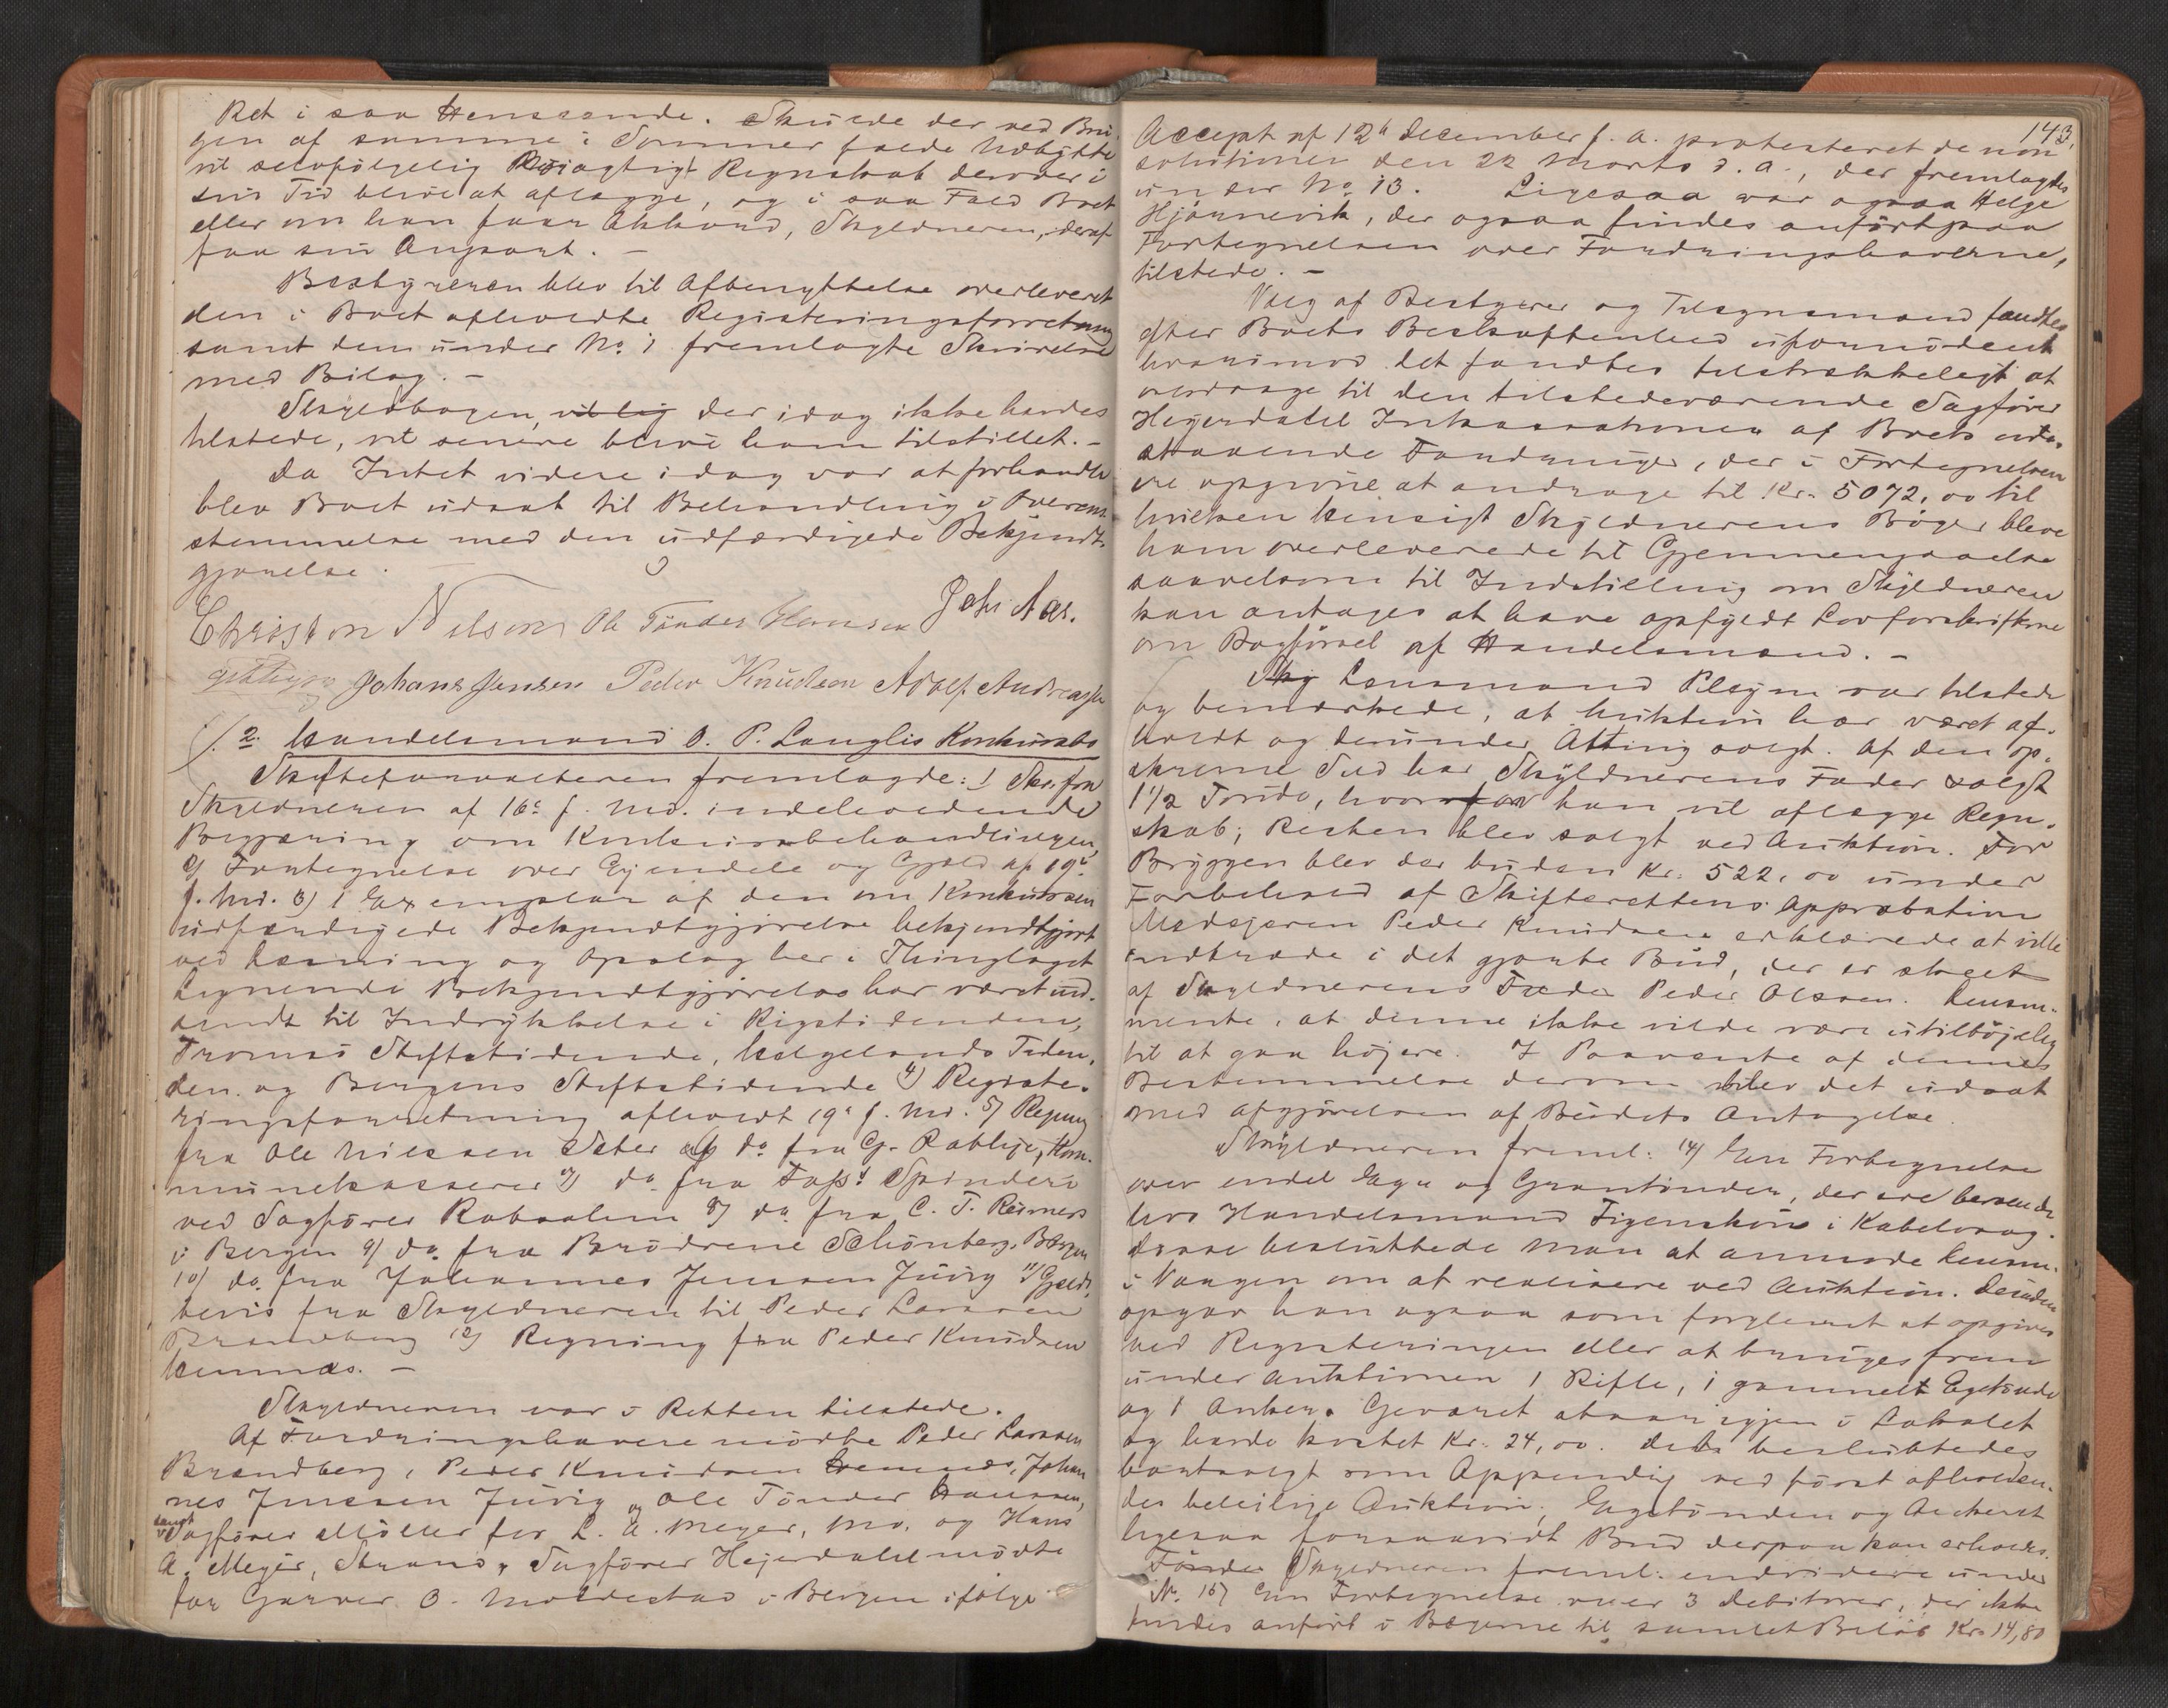 Ret i saa Henseende. Skulde der ved Bru-
gen af samme i Sommer falde Udbytte
vil selvfølgelig Nøiagtigt Regnskab derover i
sin Tid blive at aflægge, og i saa Fald Boet
eller om han faar Akkord, Skyldneren, deraf
faa sin Anpart. —
Bestyreren blev til Afbenyttelse overleveret
den i Boet afholdte Registreringsforretning
samt den under No. 1 fremlagte Skrivelse
med Bilag. —
Skyldbogen, der idag ikke havdes
tilstede, vil senere blive ham tilstillet. —
Da Intet videre idag var at forhandle
blev Boet udsat til Behandling i Overens-
stemmelse med den udfærdigede Bekjendt-
gjørelse.
Christen Nilsen Ole Tønder Hansen Joh: Aas.
Johans Jensen Peder Knudsen Adolf Andreassen
2. Handelsmand O. P. Langlis Konkursbo
Skifteforvalteren fremlagde: 1 Skr. fra
Skyldneren af 16de f. Md. indeholdende
Begjæring om Konkursbehandlingen,
2) Fortegnelse over Eiendele og Gjæld af 19de
f. Md. 3) 1 Exemplar af den om Konkursen
udfærdigede Bekjendtgjørelse bekjendtgjort
ved Læsning og Opslag her i Thinglaget
Lignende Bekjendtgjørelse har været ud-
sendt til Indrykkelse i Rigstidenden,
Tromsø Stiftstidende, Helgelands Tiden-
den og Bergens Stiftstidende 4) Registe-
ringsforretning afholdt 19de f. Md. 5) Regning
fra Ole Nilssen Sæter 6) do. fra G. Kom-
munekasserer 7) do. fra Foss Spinderi
ved Sagfører Robsahm 8) do. fra C. T. Reimers
i Bergen 9) do. fra Brødrene Schønberg, Bergen
10) do. fra Johannes Jenssen Juvig 11) Gjælds-
bevis fra Skyldneren til Peder Larssen
Brandberg 12) Regning fra Peder Knudsen
Hemnæs. —
Skyldneren var i Retten tilstede.
Af Fordringshavere mødte Peder Larssen
Brandberg, Peder Knudsen Hemnæs, Johan-
nes Jenssen Juvig og Ole Tønder Hanssen,
samt
Sagfører Møller for L. A. Meyer, Mo. og Hans
A. Meyer, Strand, Sagfører Hejerdahl mødte
for Garver O. Moldestad i Bergen ifølge
143.
Accept af 12te December f. a. protesteret de non
solutione den 22 Marts d. a., der fremlagdes
under No. 13. Ligesaa var ogsaa Helge
Hjønnevik, der ogsaa findes anført paa
Fortegnelsen over Fordringshaverne,
tilstede. —
Valg af Bestyrer og Tilsynsmand fandtes
efter Boets Beskaffenhed ufornødent
hvorimod det fandtes tilstrækkeligt at
overdrage til den tilstedeværende Sagfører
Hejerdahl Inkassationen af Boets ude-
staaende Fordringer, der i Fortegnelsen
ere opgivne at andrage til Kr. 5072,00 til
hvilken Hensigt Skyldnerens Bøger bleve
ham overleverede til Gjennemgaaelse
saavelsom til Indstilling om Skyldneren
kan antages at have opfyldt Lovforskrifterne
om Bogførsel af Handelsmænd. —
Sky Lensmand Plesym var tilstede
og bemærkede, at Auktion har været af-
holdt og derunder Alting solgt. Af den op-
skrevne Sild har Skyldnerens Fader solgt
1 1/2 Tønde, hvorfor han vil aflægge Regn-
skab; Resten blev solgt ved Auktion. For
Bryggen blev der buden Kr. 522,00 under
Forbehold af Skifterettens Approbation
Medejeren Peder Knudsen erklærede at ville
indtræde i det gjorte Bud, der er skeet
af Skyldnerens Fader Peder Olssen. Lensm.
mente, at denne ikke vilde være utilbøjelig
til at gaa højere. I Paavente af dennes
Bestemmelse derom blev det udsat
med Afgjørelsen af Budets Antagelse.
Skyldneren freml: 14) En Fortegnelse
over endel Egn og Grantønder, der ere beroende
hos Handelsmand Figenskou i Kabelvaag.
Disse besluttede man at anmode Lensm.
i Vaagen om at realisere ved Auktion. Desuden
opgav han ogsaa som forglemt at opgives
ved Registeringen eller at bringes frem
under Auktionen 1 Rifle, 1 gammelt Egetønde
og 1 Anker. Geværet staar igjen i Lokalet
og havde kostet Kr. 24,00. Dets besluttedes
bortsolgt som Appendix ved først afholden-
des beleilige Auktion, Egetønden og Ankeret
ligesaa forsaavidt Bud derpaa kan erholdes.
Tønder Skyldneren freml. endvidere under
No. 15) En Fortegnelse over 3 Debitorer, der ikke
findes anført i Bøgerne til samlet Beløb Kr. 14,80